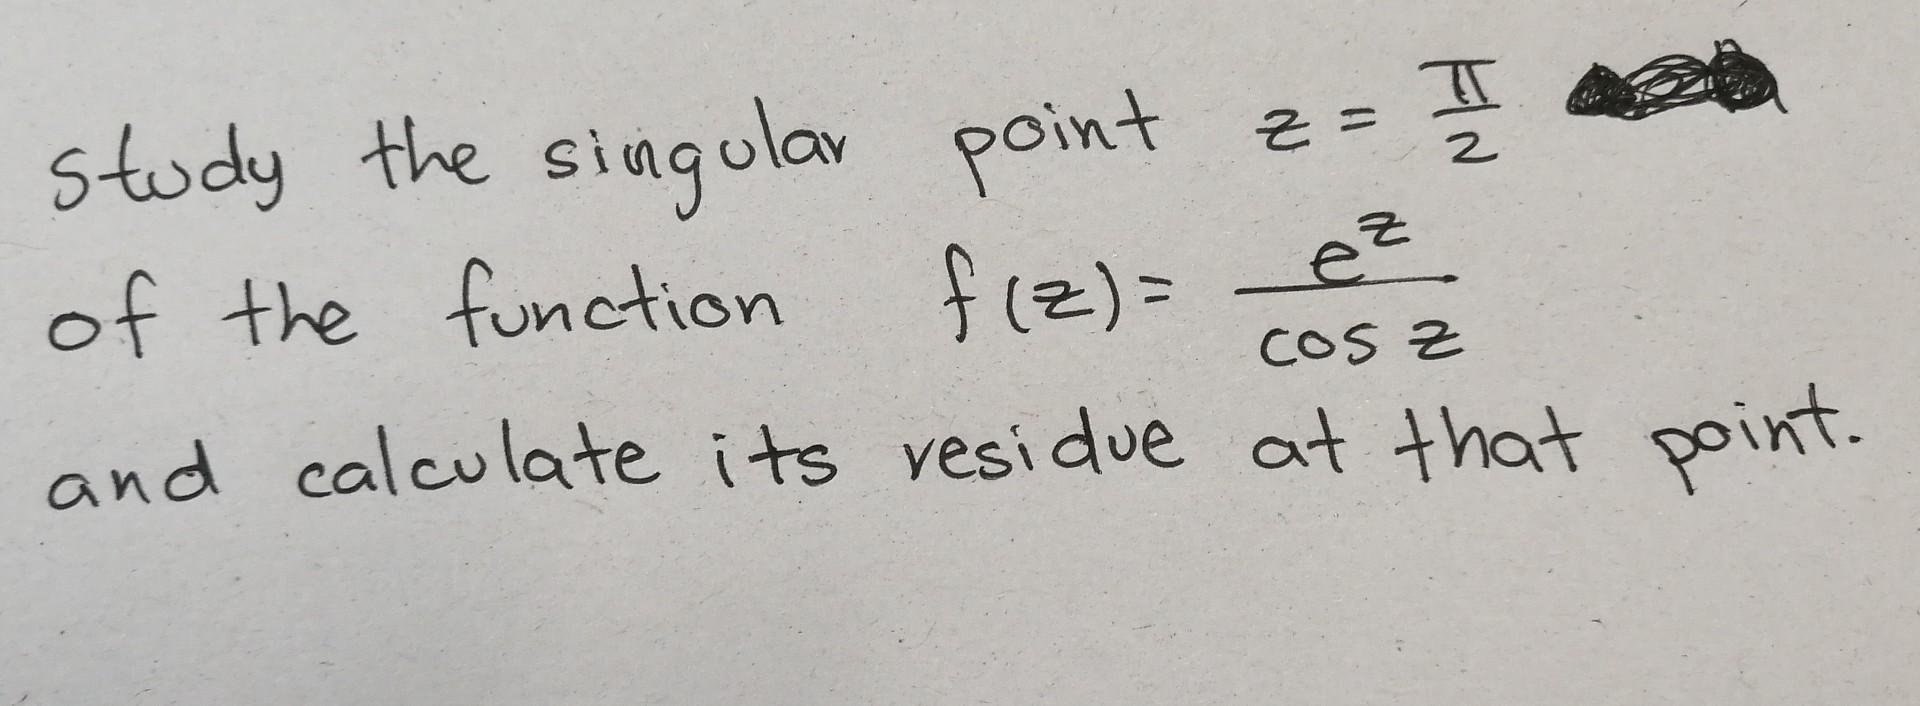 study the singular point z = π/2
of the function f(z) = e^z / cos z
and calculate its residue at that point.